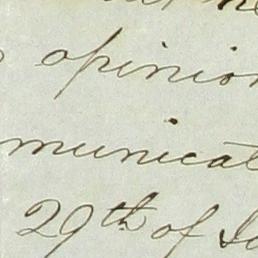 opinion
municat
29th of